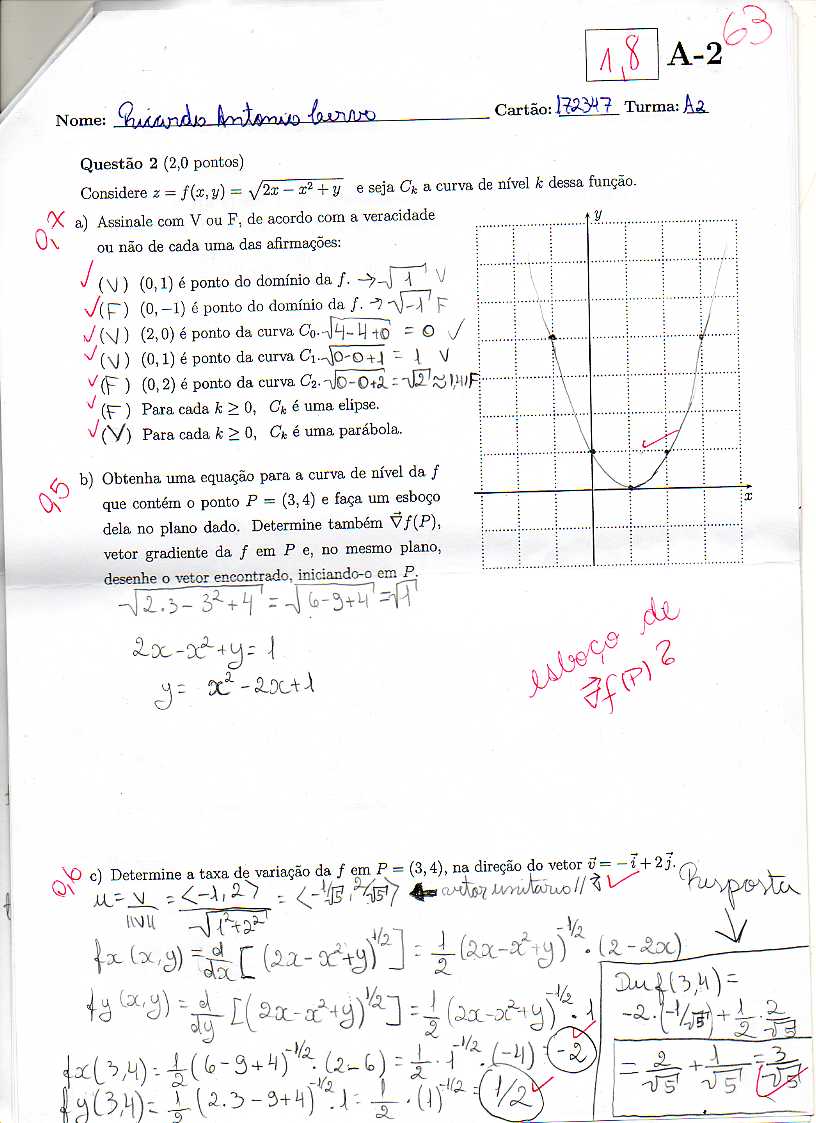 63
1,8 A-2
Nome: Ricardo Antonio Cervo Cartão: 172347 Turma: A2
Questão 2 (2,0 pontos)
Considere z = f(x, y) = √(2x − x² + y) e seja Cₖ a curva de nível k dessa função.
a) Assinale com V ou F, de acordo com a veracidade
ou não de cada uma das afirmações:
(V) (0, 1) é ponto do domínio da f. → √1 V
(F) (0, −1) é ponto do domínio da f. → √-1 F
(V) (2, 0) é ponto da curva C₀. √(4-4+0) = 0 ✓
(V) (0, 1) é ponto da curva C₁. √(0-0+1) = 1 V
(F) (0, 2) é ponto da curva C₂. √(0-0+2) = √2 ≈ 1,41 F
(F) Para cada k ≥ 0, Cₖ é uma elipse.
(V) Para cada k ≥ 0, Cₖ é uma parábola.
y
x
0,5
b) Obtenha uma equação para a curva de nível da f
que contém o ponto P = (3, 4) e faça um esboço
dela no plano dado. Determine também ∇⃗f(P),
vetor gradiente da f em P e, no mesmo plano,
desenhe o vetor encontrado, iniciando-o em P.
√(2.3 - 3² + 4) = √(6-9+4) = √1
2x - x² + y = 1
y = x² - 2x + 1
esboço de
∇⃗f(P)?
0,6
c) Determine a taxa de variação da f em P = (3, 4), na direção do vetor v⃗ = −i⃗ + 2j⃗.
Resposta
u = v/||v|| = <-1, 2>/√(1²+2²) = <-1/√5, 2/√5> ← vetor unitário // v⃗
fx(x,y) = d/dx [(2x-x²+y)^1/2] = 1/2 (2x-x²+y)^-1/2 · (2-2x)
fy(x,y) = d/dy [(2x-x²+y)^1/2] = 1/2 (2x-x²+y)^-1/2 · 1
fx(3,4) = 1/2 (6-9+4)^-1/2 · (2-6) = 1/2 · 1^-1/2 · (-4) = -2
fy(3,4) = 1/2 (2.3-9+4)^-1/2 · 1 = 1/2 · (1)^-1/2 = 1/2
Duf(3,4) =
-2·(-1/√5) + 1/2 · 2/√5
= 2/√5 + 1/√5 = 3/√5